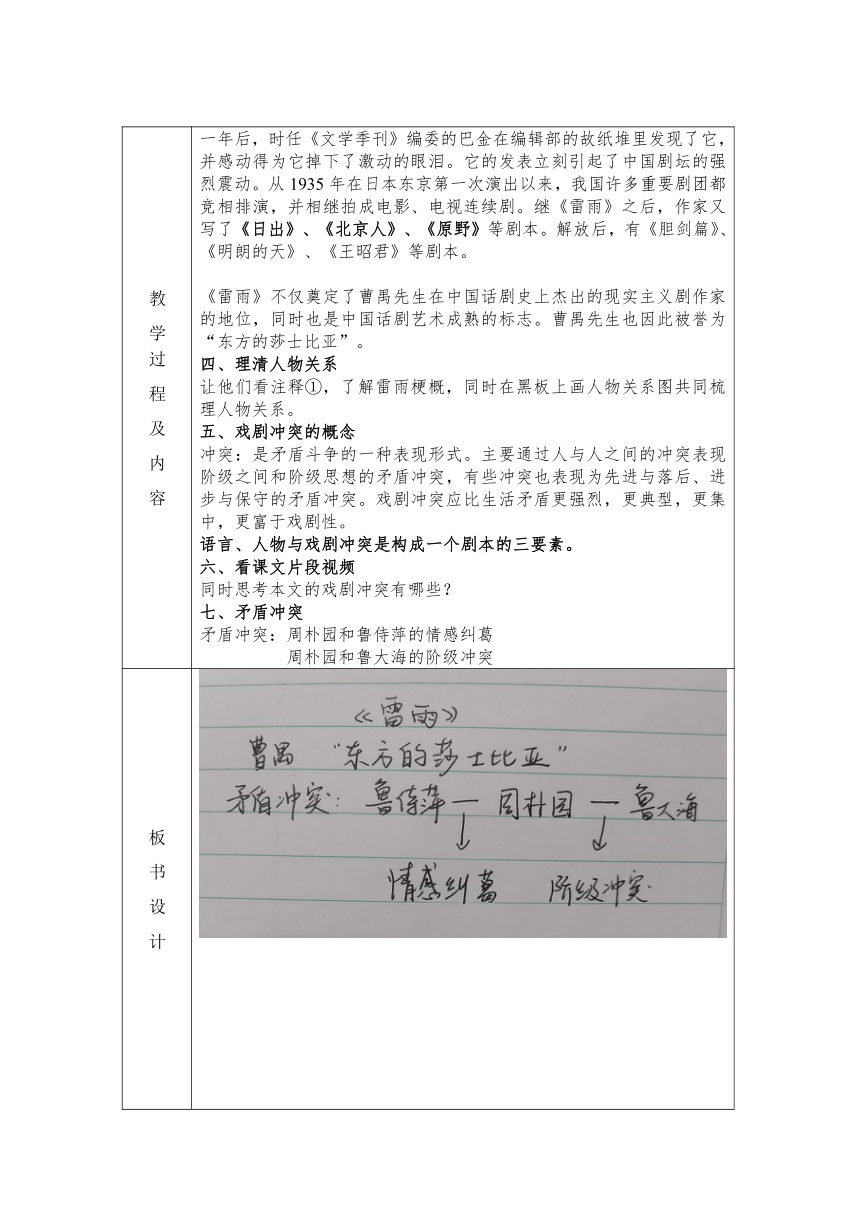 一年后，时任《文学季刊》编委的巴金在编辑部的故纸堆里发现了它，
并感动得为它掉下了激动的眼泪。它的发表立刻引起了中国剧坛的强
烈震动。从1935年在日本东京第一次演出以来，我国许多重要剧团都
竞相排演，并相继拍成电影、电视连续剧。继《雷雨》之后，作家又
写了《日出》、《北京人》、《原野》等剧本。解放后，有《胆剑篇》、
《明朗的天》、《王昭君》等剧本。
《雷雨》不仅奠定了曹禺先生在中国话剧史上杰出的现实主义剧作家
的地位，同时也是中国话剧艺术成熟的标志。曹禺先生也因此被誉为
“东方的莎士比亚”。
四、理清人物关系
让他们看注释①，了解雷雨梗概，同时在黑板上画人物关系图共同梳
理人物关系。
五、戏剧冲突的概念
冲突：是矛盾斗争的一种表现形式。主要通过人与人之间的冲突表现
阶级之间和阶级思想的矛盾冲突，有些冲突也表现为先进与落后、进
步与保守的矛盾冲突。戏剧冲突应比生活矛盾更强烈，更典型，更集
中，更富于戏剧性。
语言、人物与戏剧冲突是构成一个剧本的三要素。
六、看课文片段视频
同时思考本文的戏剧冲突有哪些？
七、矛盾冲突
矛盾冲突：周朴园和鲁侍萍的情感纠葛
周朴园和鲁大海的阶级冲突
教
学
过
程
及
内
容
板
书
设
计
《雷雨》
曹禺 “东方的莎士比亚”
矛盾冲突：鲁侍萍 — 周朴园 — 鲁大海
↓ ↓
情感纠葛 阶级冲突